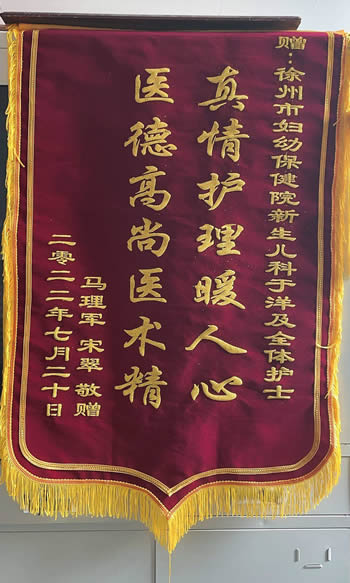 赠：徐州市妇幼保健院新生儿科于洋及全体护士
真情护理暖人心
医德高尚医术精
马理军 宋翠 敬赠
二零二二年七月二十日